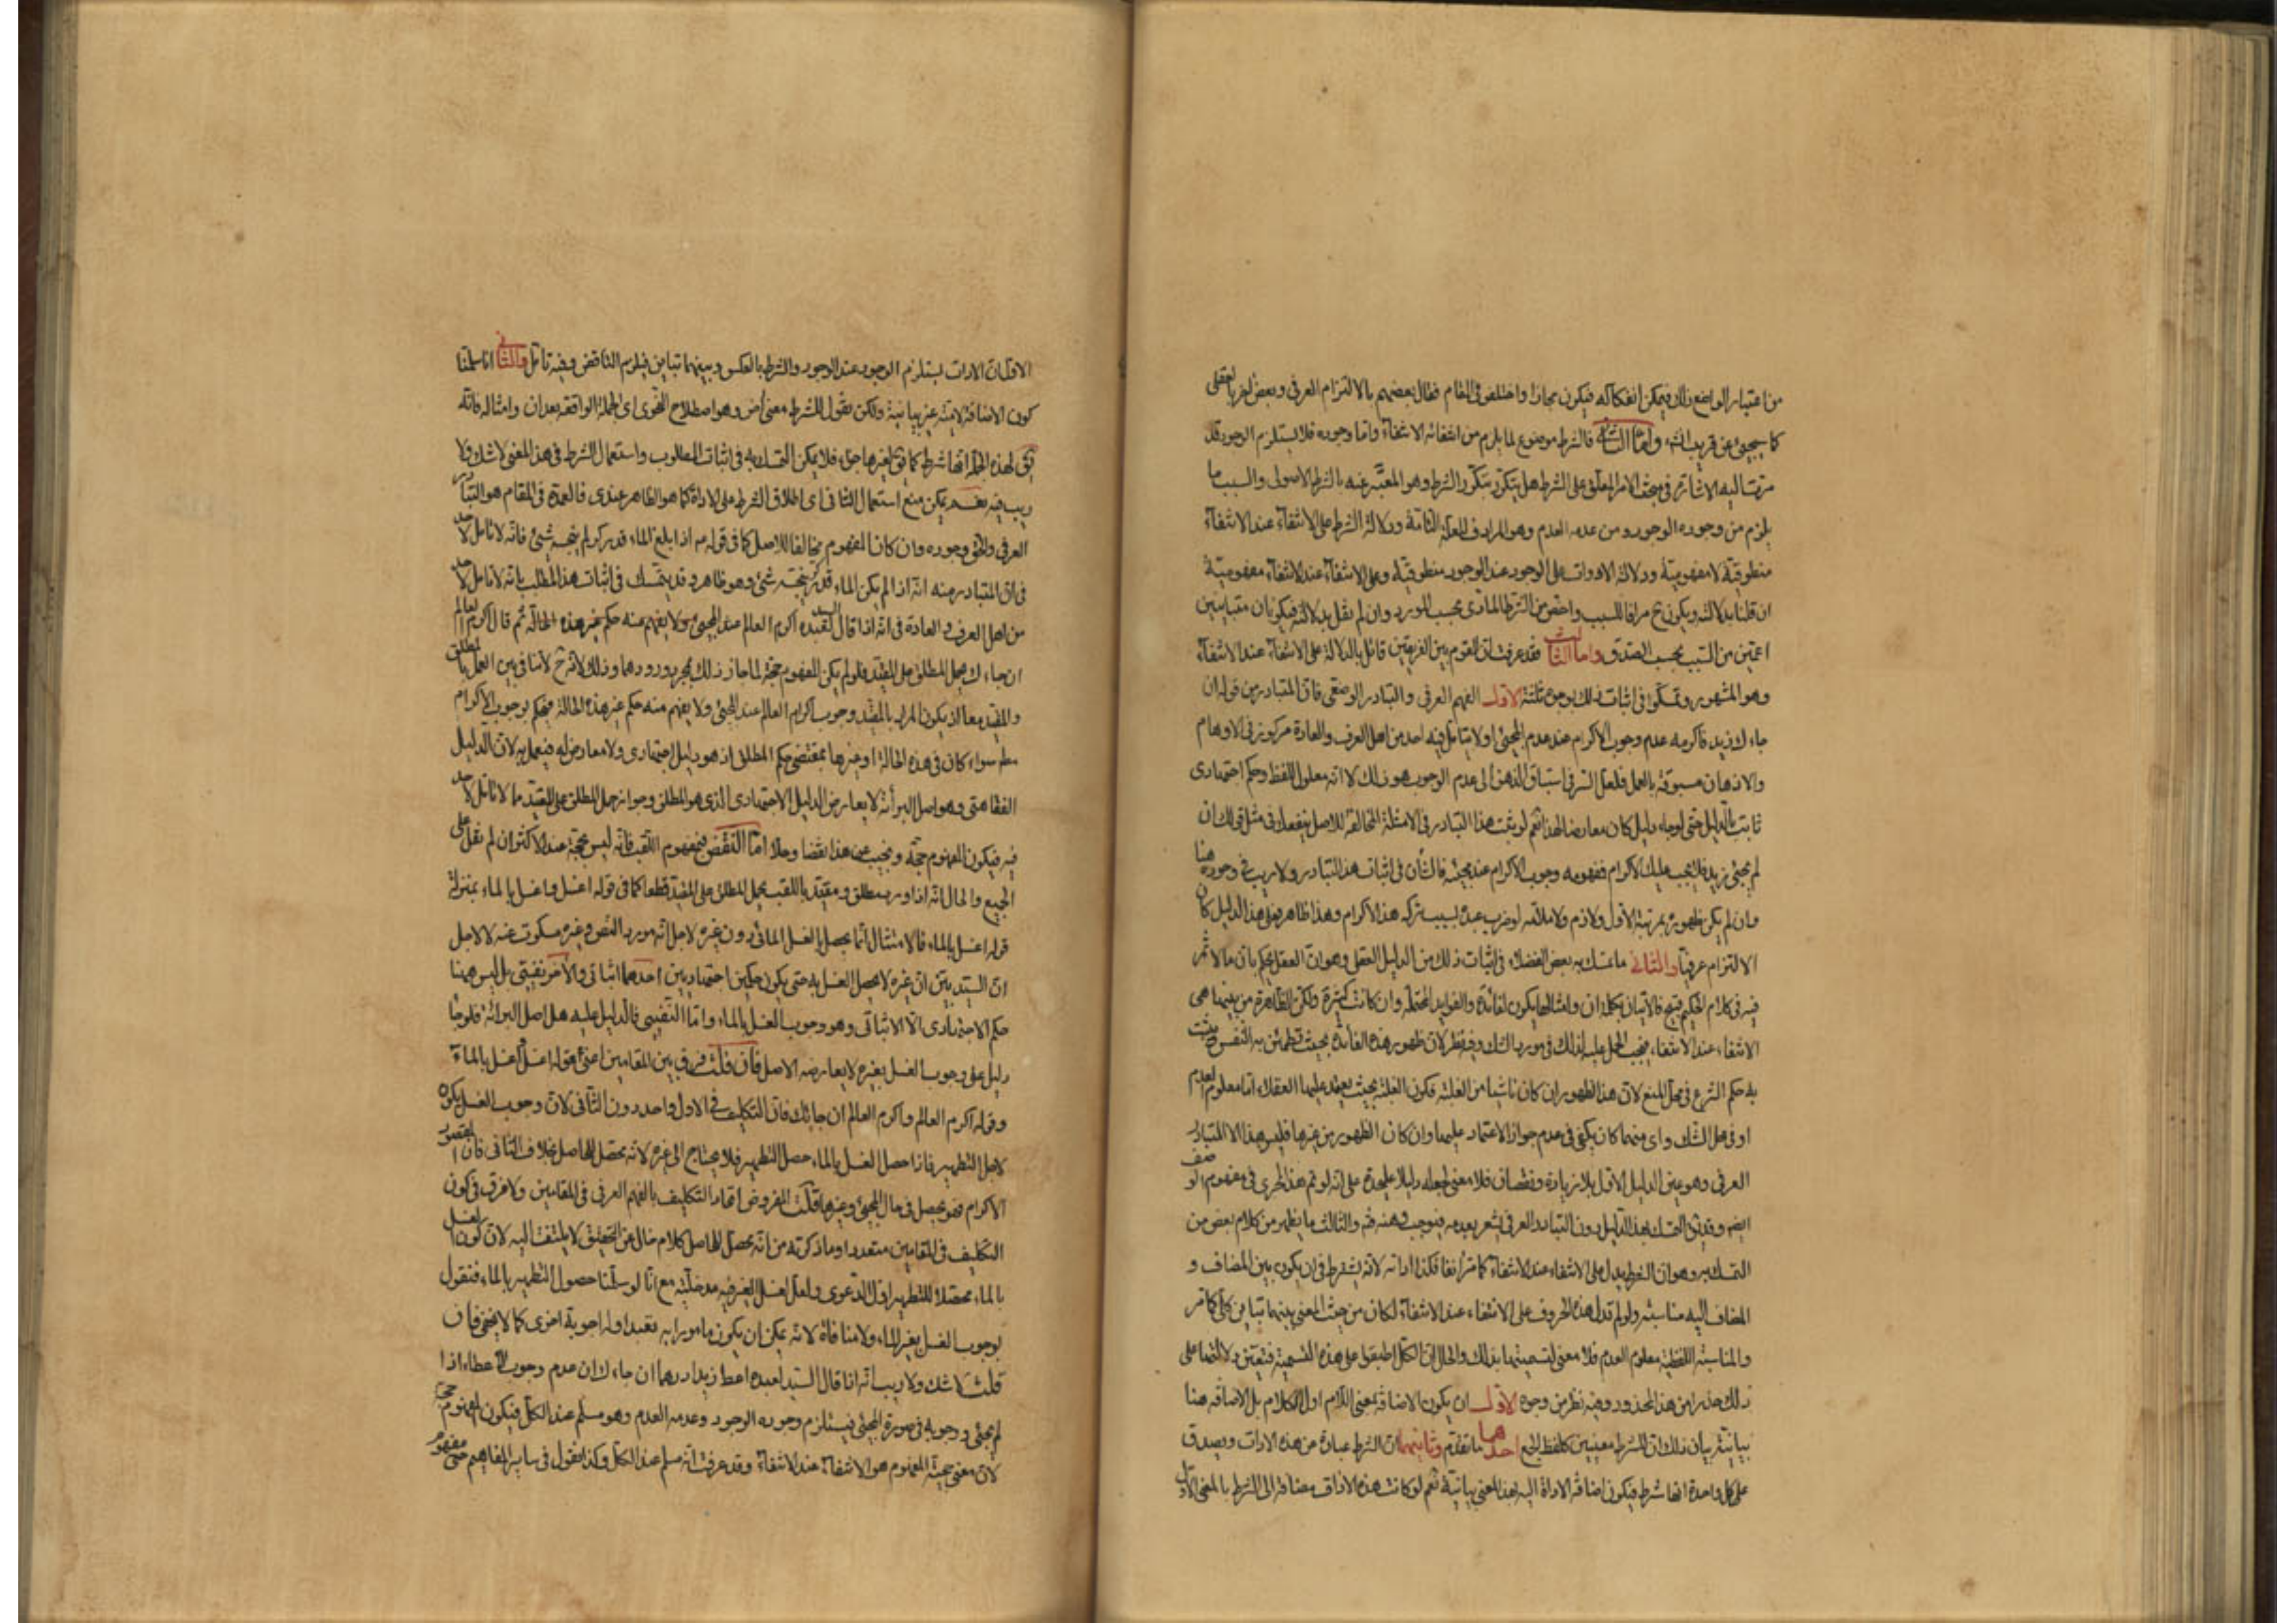 من اعتبار الواضع ذلك فيمكن انفكاكه فيكون مجازا واختلفوا فى المقام فقال بعضهم بالالتزام العرفى وبعض اخر بالعقلى
كما سيجيئ عن قريب انش واما الثانى فالشرط موضوع لما يلزم من انتفائه الانتفاء واما وجوده فلا يستلزم الوجود قد
مرت اليه الاشارة فى مبحث الامر المعلق على الشرط هل يتكرر بتكرر الشرط وهو المعبر عنه بالشرط الاصولى والسبب ما
يلزم من وجوده الوجود ومن عدمه العدم وهو المرادف للعلة التامة ودلالة الشرط على الانتفاء عند الانتفاء
منطوقية لا مفهومية ودلالة الادوات على الوجود عند الوجود منطوقية وعلى الانتفاء عند الانتفاء مفهومية
ان قلنا بدلالته ويكون ح مرادفا للسبب واخص من الشرط المادى بحسب المورد وان لم نقل بدلالته فيكونان متباينين
اعمين من السبب بحسب الصدق واما الثالث فقد عرفت ان القوم بين الفريقين قائل بالدلالة على الانتفاء عند الانتفاء
وهو المشهور وتمسكوا فى اثبات ذلك بوجوه ثلثة الاول الفهم العرفى والتبادر الوضعى فان المتبادر من قوله ان
جاءك زيد فاكرمه عدم وجوب الاكرام عند عدم المجيئ ولا يتامل فيه احد من اهل العرف والعادة مركوز فى الاوهام
والاذهان مسبوقة بالعمل فلعل السر فى استباق الذهن الى عدم الوجوب هو ذلك لا انه معلول اللفظ وحكم اجتهادى
ثابت بالدليل حتى لو جاء دليل كان معارضا لهذا نعم لو ثبت هذا التبادر فى الامثلة المخالفة للاصل ينفعك فى مثل قولك ان
لم يجيئ زيد فلا يجب عليك الاكرام فمفهومه وجوب الاكرام عند مجيئه فالشأن فى اثبات هذا التبادر ولا ريب فى وجوده هنا
وان لم يكن ظهوره بمرتبة الاول ولا ذم ولا ملامة لو ضرب عبده بسبب تركه هذا الاكرام وهذا ظاهر وعلى هذا الدليل كان
الالتزام عرفيا والثانى ما تمسك به بعض الفضلاء فى اثبات ذلك من الدليل العقلى وهو ان العقل يحكم بان ما لا ثمر
فيه فى كلام الحكيم قبيح فالاتيان بكلمة ان وامثالها يكون لفائدة والفوايد المحتملة وان كانت كثيرة ولكن الظاهرة من بينها هى
الانتفاء عند الانتفاء فيجب الحمل عليه لذلك فى مورد الشك وفيه نظر لان ظهور هذه الفائدة بحيث تطمئن به النفس ويثبت
به حكم الشرع فى محل المنع لان هذا الظهور ان كان ناشيا من الغلبة فكون الغلبة بحيث يعتمد عليها العقلاء اما معلوم العدم
او فى محل الشك واى منهما كان يكفى فى عدم جواز الاعتماد عليها وان كان الظهور من غيرها فليس هذا الا المتبادر
العرفى وهو عين الدليل الاول بلا زيادة ونقصان فلا معنى لجعله دليلا عليحدة على انه لو تم هذا لجرى فى مفهوم الوصف
ايضا وقد يق التمسك بهذا الدليل دون التبادر العرفى يشعر بعدمه فيوجب وهنه فتم والثالث ما يظهر من كلام بعض من
التمسك به وهو ان الشرط يدل على الانتفاء عند الانتفاء كما مر انفا فكذا اداته لانه يشترط فى ان يكون بين المضاف و
المضاف اليه مناسبة ولو لم تدل هذه الحروف على الانتفاء عند الانتفاء لكان من حيث المعنى بينهما تباين كلى كما مر
والمناسبة اللفظية معلوم العدم فلا معنى لتسميتها بذلك والحال ان الكل اطبقوا على هذه التسمية فيتعين دلالتها على
ذلك حذرا من هذا المحذور وفيه نظر من وجوه الاول ان يكون الاضافة بمعنى اللام اول الكلام بل الاضافة هنا
بيانية بيان ذلك ان للشرط معنيين كلفظ الجمع احدهما ما تقدم وثانيهما ان الشرط عبارة عن هذه الادات ويصدق
على كل واحدة انها شرط فيكون اضافة الاداة اليه بهذا المعنى بيانية نعم لو كانت هذه الاداة مضافة الى الشرط بالمعنى الاول
الاول ان الادات يستلزم الوجود عند الوجود والشرط بالعكس وبينهما تباين فيلزم التناقض وفيه تامل والثانى انا سلمنا
كون الاضافة لامية غير بيانية ولكن نقول للشرط معنى اخر وهو اصطلاح النحوى اى الجملة الواقعة بعد ان وامثاله فانه
يق لهذه الجملة انها شرط كما يق لغيرها جزاء فلا يمكن التمسك به فى اثبات المطلوب واستعمال الشرط فى هذا المعنى لا شك ولا
ريب فيه نعم يمكن منع استعمال الثانى اى اطلاق الشرط على الاداة كما هو الظاهر عندى فالعمدة فى المقام هو التبادر
العرفى والحق وجوده وان كان المفهوم مخالفا للاصل كما فى قوله عم اذا بلغ الماء قدر كر لم ينجسه شيئ فانه لا تامل لاحد
فى ان المتبادر منه انه اذا لم يكن الماء قدر كر ينجسه شيئ وهو ظاهر وقد يتمسك فى اثبات هذا المطلب بانه لا تامل لاحد
من اهل العرف والعادة فى انه اذا قال السيد لعبده اكرم العالم عند المجيئ ولا يفهم منه حكم غير هذه الحالة ثم قال اكرم العالم
ان جاءك يحمل المطلق على المقيد فلو لم يكن المفهوم حجة لما جاز ذلك بمجرد ورودهما وذلك لانه ح لا تنافى بين العمل بالمطلق
والمقيد معا اذ يكون المراد بالمقيد وجوب اكرام العالم عند المجيئ ولا يفهم منه حكم غير هذه الحالة فيحكم بوجوب الاكرام
مطم سواء كان فى هذه الحالة او غيرها بمقتضى حكم المطلق اذ هو دليل اجتهادى ولا معارض له فيعمل به لان الدليل
الفقاهتى وهو اصل البرائة لا يعارض الدليل الاجتهادى الذى هو المطلق وجواز حمل المطلق على المقيد مما لا تامل لاحد
فيه فيكون المفهوم حجة ونجيب عن هذا نقضا وحلا اما النقض فبمفهوم اللقب فانه ليس بحجة عند الاكثر ان لم نقل على
الجميع والحال انه اذا ورد مطلق ومقيد باللقب يحمل المطلق على المقيد قطعا كما فى قوله اغسل واغسل بالماء بمنزلة
قوله اغسل بالماء فالامتثال انما يحصل بالغسل المائى دون غيره لاجل انه مورد النص وغيره مسكوت عنه لا لاجل
ان السيد بين ان غيره لا يحصل الغسل به حتى يكون حكمين اجتهاديين احدهما اثباتى والاخر نفيتى بل ليس ههنا
حكم الاجتهادى الا الاثباتى وهو وجوب الغسل بالماء واما النفيى فالدليل عليه هل اصل البرائة فلو جاء
دليل على وجوب الغسل بغيره لا يعارضه الاصل فان قلت فرق بين المقامين اعنى قوله اغسل واغسل بالماء
وقوله اكرم العالم واكرم العالم ان جائك فان التكليف فى الاول واحد دون الثانى لان وجوب الغسل يكون
لاجل التطهير فاذا حصل الغسل بالماء حصل التطهير فلا يحتاج الى غيره لانه يحصل الحاصل بخلاف الثانى فان المقصود
الاكرام فهو يحصل فى حال المجيئ وغيرها قلت المفروض اتحاد التكليف بالفهم العرفى فى المقامين ولا فرق فى كون
التكليف فى المقامين متعددا وما ذكرته من انه يحصل الحاصل كلام خال عن التحقيق لا يلتفت اليه لان كون الغسل
بالماء محصلا للتطهير اول الدعوى ولعل لغسل الغير فيه مدخلية مع انا لو سلمنا حصول التطهير بالماء فنقول
بوجوب الغسل بغير الماء ولا منافاة لانه يمكن ان يكون مامورا به تعبدا وله اجوبة اخرى كما لا يخفى فان
قلت لا شك ولا ريب انه اذا قال السيد لعبده اعط زيدا درهما ان جاءك ان عدم وجوب الاعطاء اذا
لم يجيئ ووجوبه فى صورة المجيئ فيستلزم وجوده الوجود وعدمه العدم وهو مسلم عند الكل فيكون المفهوم حجة
لان معنى حجية المفهوم هو الانتفاء عند الانتفاء وقد عرفت انه مسلم عند الكل وكذا نقول فى ساير المفاهيم حتى مفهوم